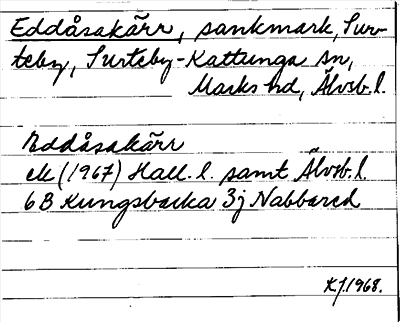 Eddåsakärr, sankmark, Sur-
teby, Surteby-Kattunga sn,
Marks hd, Älvsb.l.
Eddåsakärr
ek (1967) Hall. l. samt Älvsb.l.
6B Kungsbacka 3j Nabbared
K.J.1968.